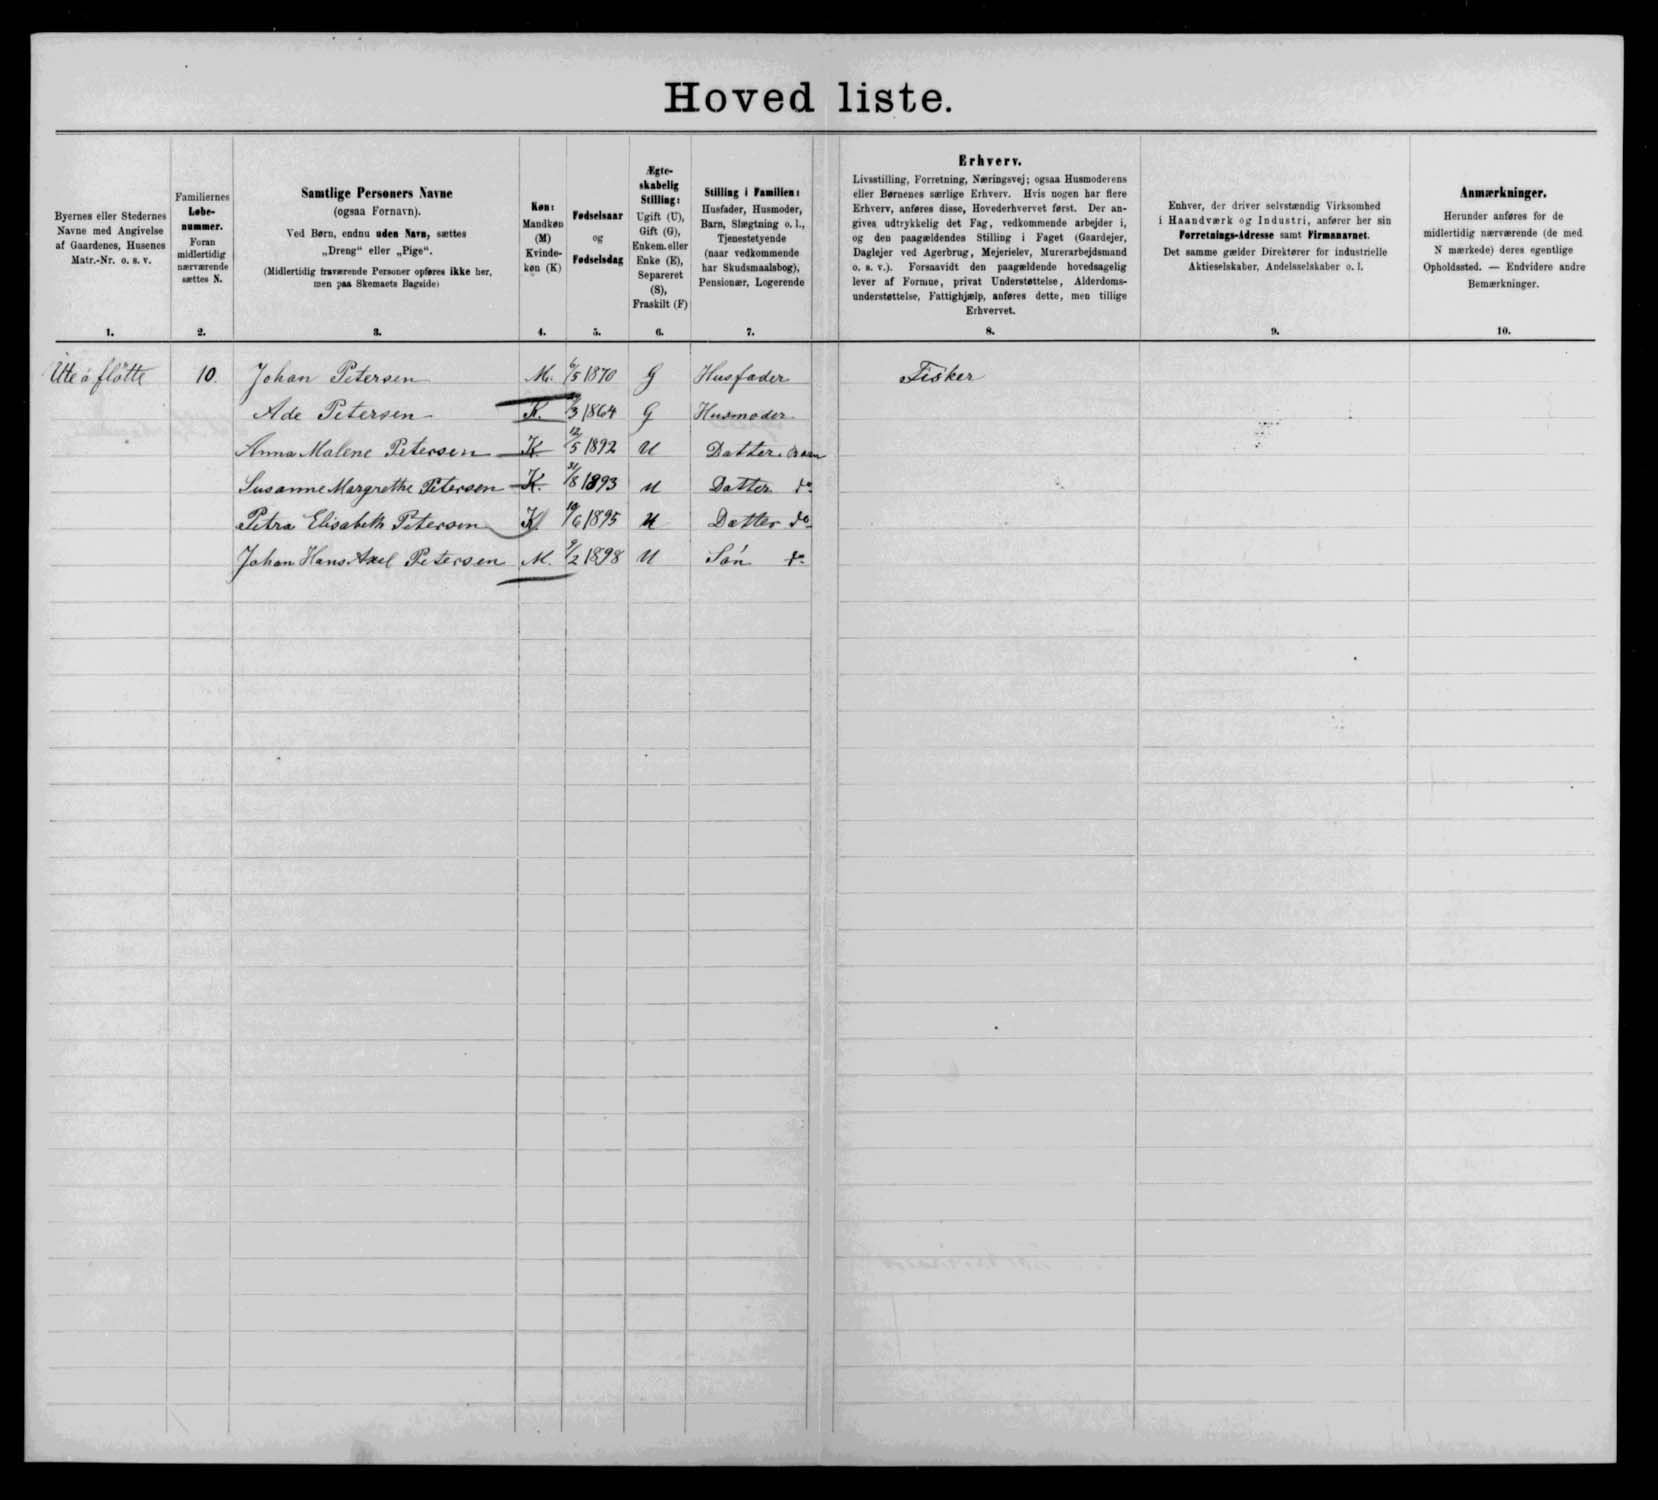 Hoved liste.
Byernes eller Stedernes
Navne med Angivelse
af Gaardenes, Husenes
Matr.-Nr. o. s. v.
1.
Familiernes
Løbe-
nummer.
Foran
midlertidig
nærværende
sættes N.
2.
Samtlige Personers Navne
(ogsaa Fornavn).
Ved Børn, endnu uden Navn, sættes
„Dreng“ eller „Pige“.
(Midlertidig fraværende Personer opføres ikke her,
men paa Skemaets Bagside)
3.
Køn:
Mandkøn
(M)
Kvinde-
køn (K)
4.
Fødselsaar
og
Fødselsdag
5.
Ægte-
skabelig
Stilling:
Ugift (U),
Gift (G),
Enkem. eller
Enke (E),
Separeret
(S),
Fraskilt (F)
6.
Stilling i Familien:
Husfader, Husmoder,
Barn, Slægtning o. l.,
Tjenestetyende
(naar vedkommende
har Skudsmaalsbog),
Pensionær, Logerende
7.
Erhverv.
Livsstilling, Forretning, Næringsvej; ogsaa Husmoderens
eller Børnenes særlige Erhverv. Hvis nogen har flere
Erhverv, anføres disse, Hovederhvervet først. Der an-
gives udtrykkelig det Fag, vedkommende arbejder i,
og den paagældendes Stilling i Faget (Gaardejer,
Daglejer ved Agerbrug, Mejerielev, Murerarbejdsmand
o. s. v.). Forsaavidt den paagældende hovedsagelig
lever af Formue, privat Understøttelse, Alderdoms-
understøttelse, Fattighjælp, anføres dette, men tillige
Erhvervet.
8.
Enhver, der driver selvstændig Virksomhed
i Haandværk og Industri, anfører her sin
Forretnings-Adresse samt Firmanavnet.
Det samme gælder Direktører for industrielle
Aktieselskaber, Andelsselskaber o. l.
9.
Anmærkninger.
Herunder anføres for de
midlertidig nærværende (de med
N mærkede) deres egentlige
Opholdssted. — Endvidere andre
Bemærkninger.
10.
Ute å fløtte 10. Johan Petersen M. 6/5 1870 G Husfader Fisker
Ade Petersen K. /3 1864 G Husmoder
Anna Malene Petersen K 12/5 1892 U Datter Barn
Susanne Margrethe Petersen K. 31/8 1893 U Datter do
Petra Elisabeth Petersen K 19/6 1895 U Datter do
Johan Hans Axel Petersen M. 9/2 1898 U Søn do